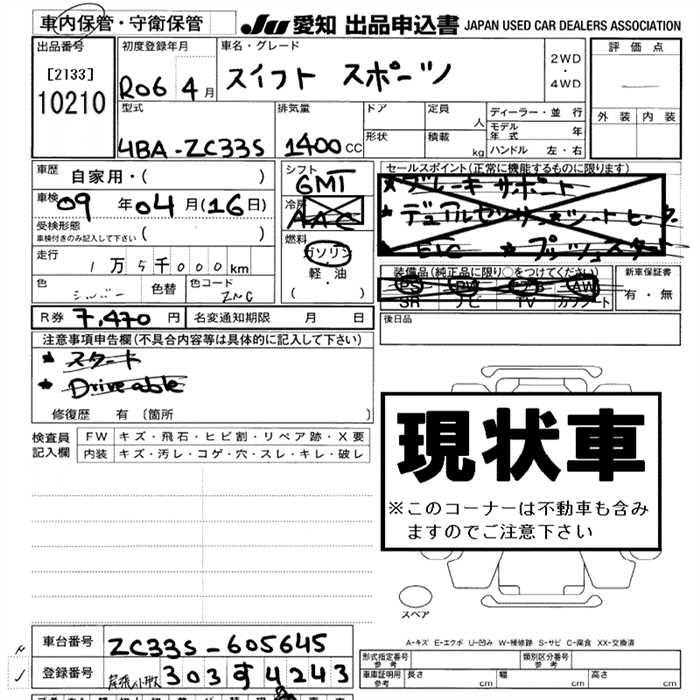 車内保管・守衛保管
JU 愛知 出品申込書 JAPAN USED CAR DEALERS ASSOCIATION
出品番号
[2133]
10210
初度登録年月
R06 4月
車名・グレード
スイフト スポーツ
2WD
・
4WD
評価点
外装 内装
型式
4BA-ZC33S
排気量
1400cc
ドア
形状
定員
人
積載
kg
ディーラー・並行
モデル年式 年
ハンドル 左・右
車歴
自家用・( )
車検
09年04月(16日)
受検形態
車検付きのみ記入して下さい ( )
走行
1万5千000km
色
シルバー
色替
色コード
ZNC
シフト
6MT
冷房
AAC
燃料
ガソリン
・
軽・油
( )
セールスポイント(正常に機能するものに限ります)
★ブレーキサポート
★デュアルセンサー ★シートヒーター
★ETC ★プッシュスタート
装備品(純正品に限り○をつけてください)
PS PW エアB AW
SR ナビ TV カワシート
新車保証書
有・無
後日品
R券 7,470円
名変通知期限 月 日
注意事項申告欄(不具合内容等は具体的に記入して下さい)
★スタート
★Driveable
修復歴 有 〔箇所 〕
検査員記入欄
FW キズ・飛石・ヒビ割・リペア跡・X要
内装 キズ・汚レ・コゲ・穴・スレ・キレ・破レ
現状車
※このコーナーは不動車も含み
ますのでご注意下さい
スペア
A-キズ E-エクボ U-凹み W-補修跡 S-サビ C-腐食 XX-交換済
車台番号 ZC33S-605645
登録番号 尾張小牧 303 す 4243
形式指定番号
参考
類別区分番号
参考
車庫証明用
参考
長さ cm
幅 cm
高さ cm